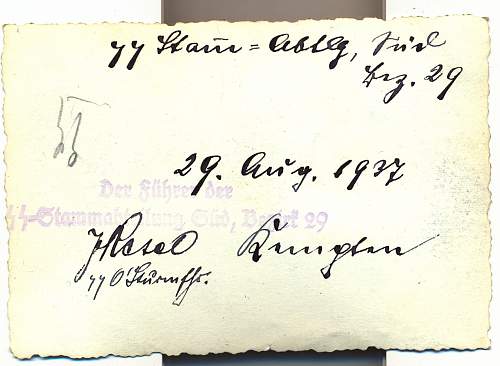 SS Stam̅ = Abtlg, Süd
Bez. 29
29. Aug. 1937
Der Führer der
SS-Stammabteilung Süd, Bezirk 29
Kempten
SS O'Sturmfhr.